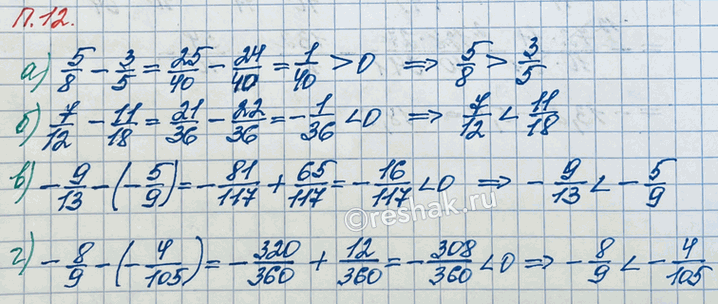 П.12.
а) 5/8 - 3/5 = 25/40 - 24/40 = 1/40 > 0 ⇒ 5/8 > 3/5
б) 7/12 - 11/18 = 21/36 - 22/36 = -1/36 < 0 ⇒ 7/12 < 11/18
в) -9/13 - (-5/9) = -81/117 + 65/117 = -16/117 < 0 ⇒ -9/13 < -5/9
©reshak.ru
г) -8/9 - (-4/105) = -320/360 + 12/360 = -308/360 < 0 ⇒ -8/9 < -4/105